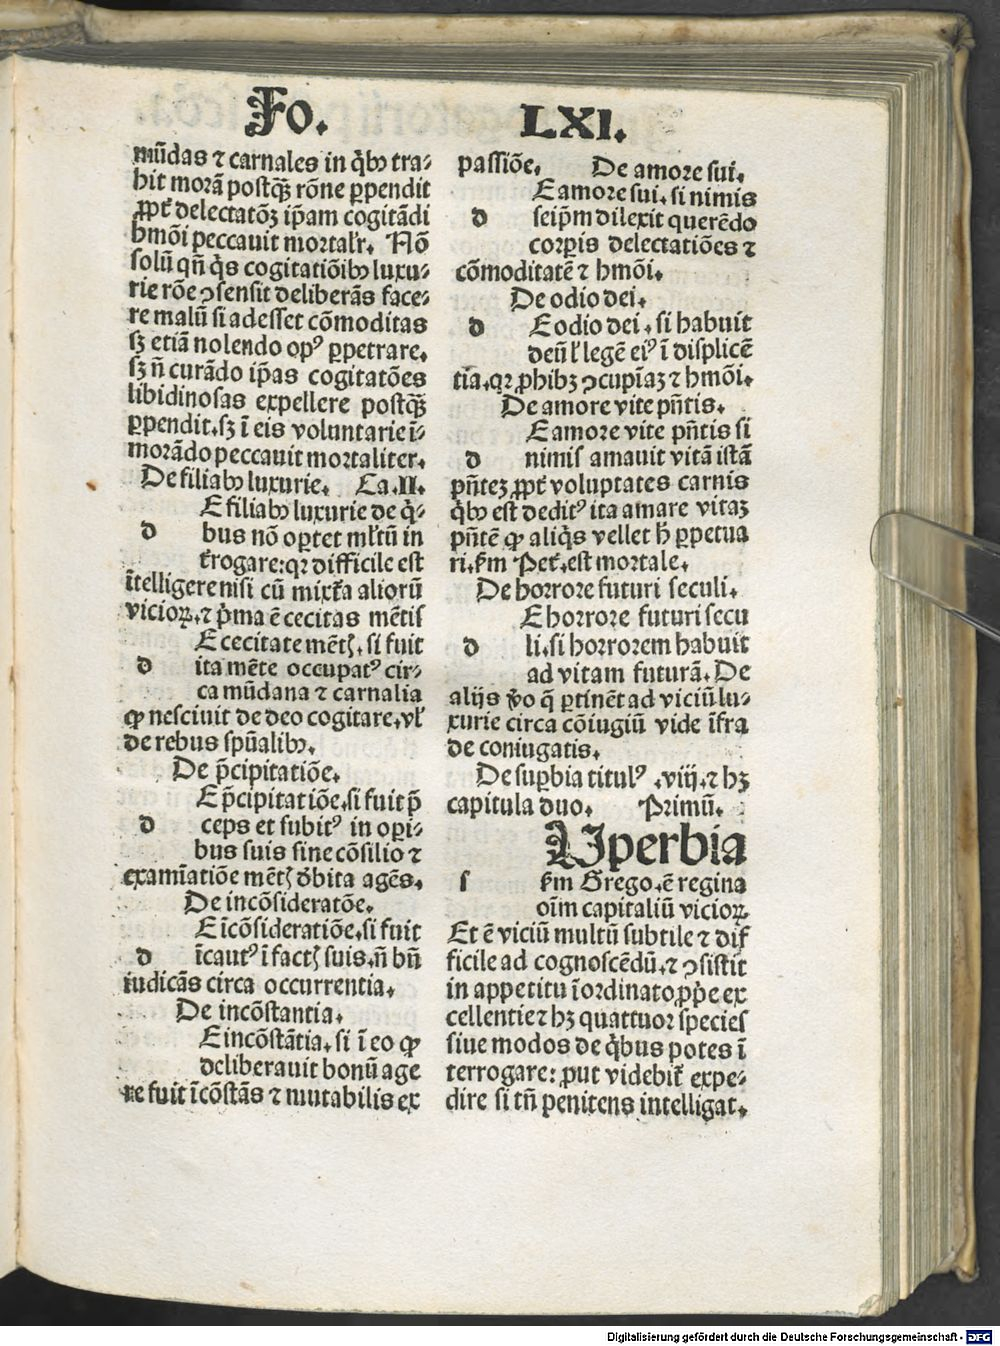 Fo. LXI.
mūdas ⁊ carnales in q̇bꝰ tra⸗
hit morā postq̄ꝫ rōne ꝑpendit
ꝓpt̄ delectatōꝫ ip̄am cogitādi
hmōi peccauit mortal'r. Nō
solū qn̄ q̇s cogitatiōibꝰ luxu⸗
rie rōe ꝯsensit deliberās face⸗
re malū si adesset cōmoditas
sꝫ etiā nolendo opꝰ ꝑpetrare.
sꝫ n̄ curādo ip̄as cogitatōes
libidinosas expellere postq̄ꝫ
ꝑpendit. sꝫ ī eis voluntarie ī⸗
morādo peccauit mortaliter.
De filiabꝰ luxurie. Ca. II.
E filiabꝰ luxurie de q̇⸗
d bus nō oꝑtet ml̄tū in
t̄rogare: qꝛ difficile est
ītelligere nisi cū mixt̄a aliorū
vicioꝝ. ⁊ p̄ma ē cecitas mētis
E cecitate mētꝭ. si fuit
d ita mēte occupatꝰ cir⸗
ca mūdana ⁊ carnalia
ꝙ nesciuit de deo cogitare. vl̓
de rebus spūalibꝰ.
De p̄cipitatiōe.
E p̄cipitatiōe. si fuit p̄
d ceps et subitꝰ in oꝑi⸗
bus suis sine cōsilio ⁊
examīatiōe mētꝭ d̓bita agēs.
De incōsideratōe.
E īcōsideratiōe. si fuit
d īcautꝰ ī factꝭ suis. n̄ bn̄
iudicās circa occurrentia.
De incōstantia.
E incōstātia. si ī eo ꝙ
deliberauit bonū age
re fuit īcōstās ⁊ mutabilis ex
passiōe. De amore sui.
E amore sui. si nimis
d seip̄m dilexit querēdo
corꝑis delectatiōes ⁊
cōmoditatē ⁊ hmōi.
De odio dei.
d E odio dei. si habuit
deū l̓ legē eiꝰ ī displicē
tia. qꝛ ꝓhibꝫ ꝯcupīaꝫ ⁊ hmōi.
De amore vite pn̄tis.
E amore vite pn̄tis si
d nimis amauit vitā istā
pn̄teꝫ ꝓpt̄ voluptates carnis
q̇bꝰ est deditꝰ ita amare vitaꝫ
pn̄tē ꝙ aliq̇s vellet h̄ ꝑpetua
ri. ẜm Pet̄. est mortale.
De horrore futuri seculi.
E horrore futuri secu
d li. si horrorem habuit
ad vitam futurā. De
alijs v̓o q̄ ꝑtinēt ad viciū lu⸗
xurie circa cōiugiū vide īfra
de coniugatis.
De suꝑbia titulꝰ .viij. ⁊ hꝫ
capitula duo. Primū.
Uperbia
s ẜm Grego. ē regina
oīm capitaliū vicioꝝ.
Et ē viciū multū subtile ⁊ dif
ficile ad cognoscēdū. ⁊ ꝯsistit
in appetitu īordinato ꝓp̄e ex
cellentie ⁊ hꝫ quattuor species
siue modos de q̇bus potes ī
terrogare: ꝓut videbit̄ expe⸗
dire si tn̄ penitens intelligat.
Digitalisierung gefördert durch die Deutsche Forschungsgemeinschaft - DFG